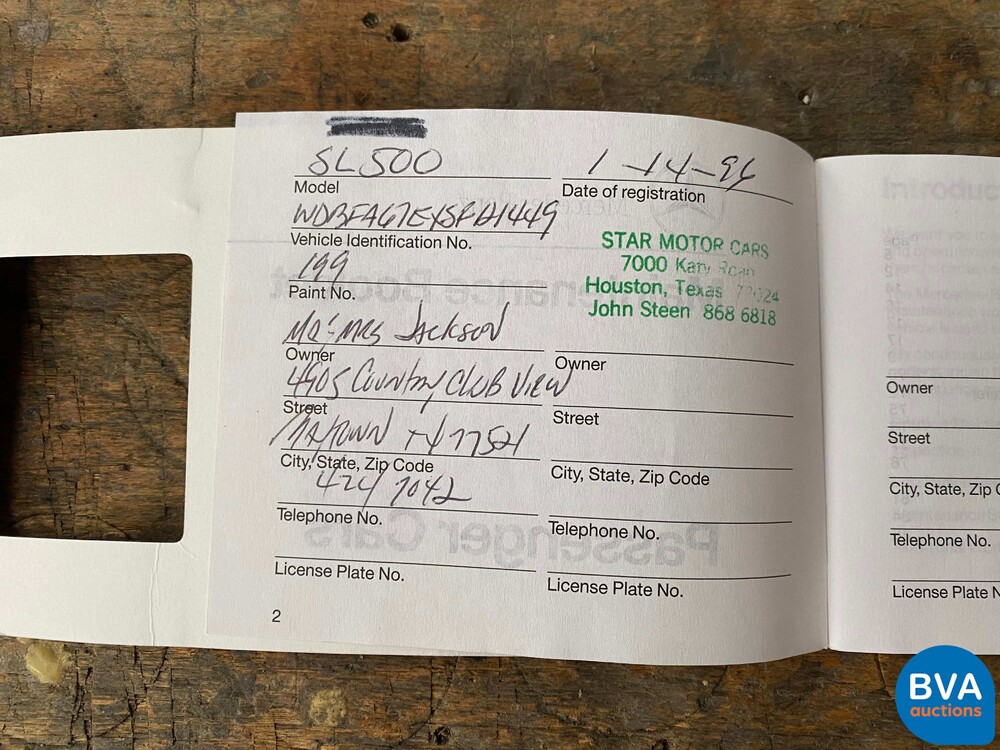 SL500 1-14-96
Model Date of registration
WDBFA67E
Vehicle Identification No.
199
Paint No.
STAR MOTOR CARS
7000 Katy Road
Houston, Texas 77024
John Steen 868 6818
Mr & Mrs Jackson
Owner
4905 Country Club View
Street
Baytown TX 77521
City, State, Zip Code
424 7042
Telephone No.
License Plate No.
2
Owner
Street
City, State, Zip Code
Telephone No.
License Plate No.
Introduc
Owner
Street
City, State, Zip C
Telephone No.
License Plate N
BVA
auctions